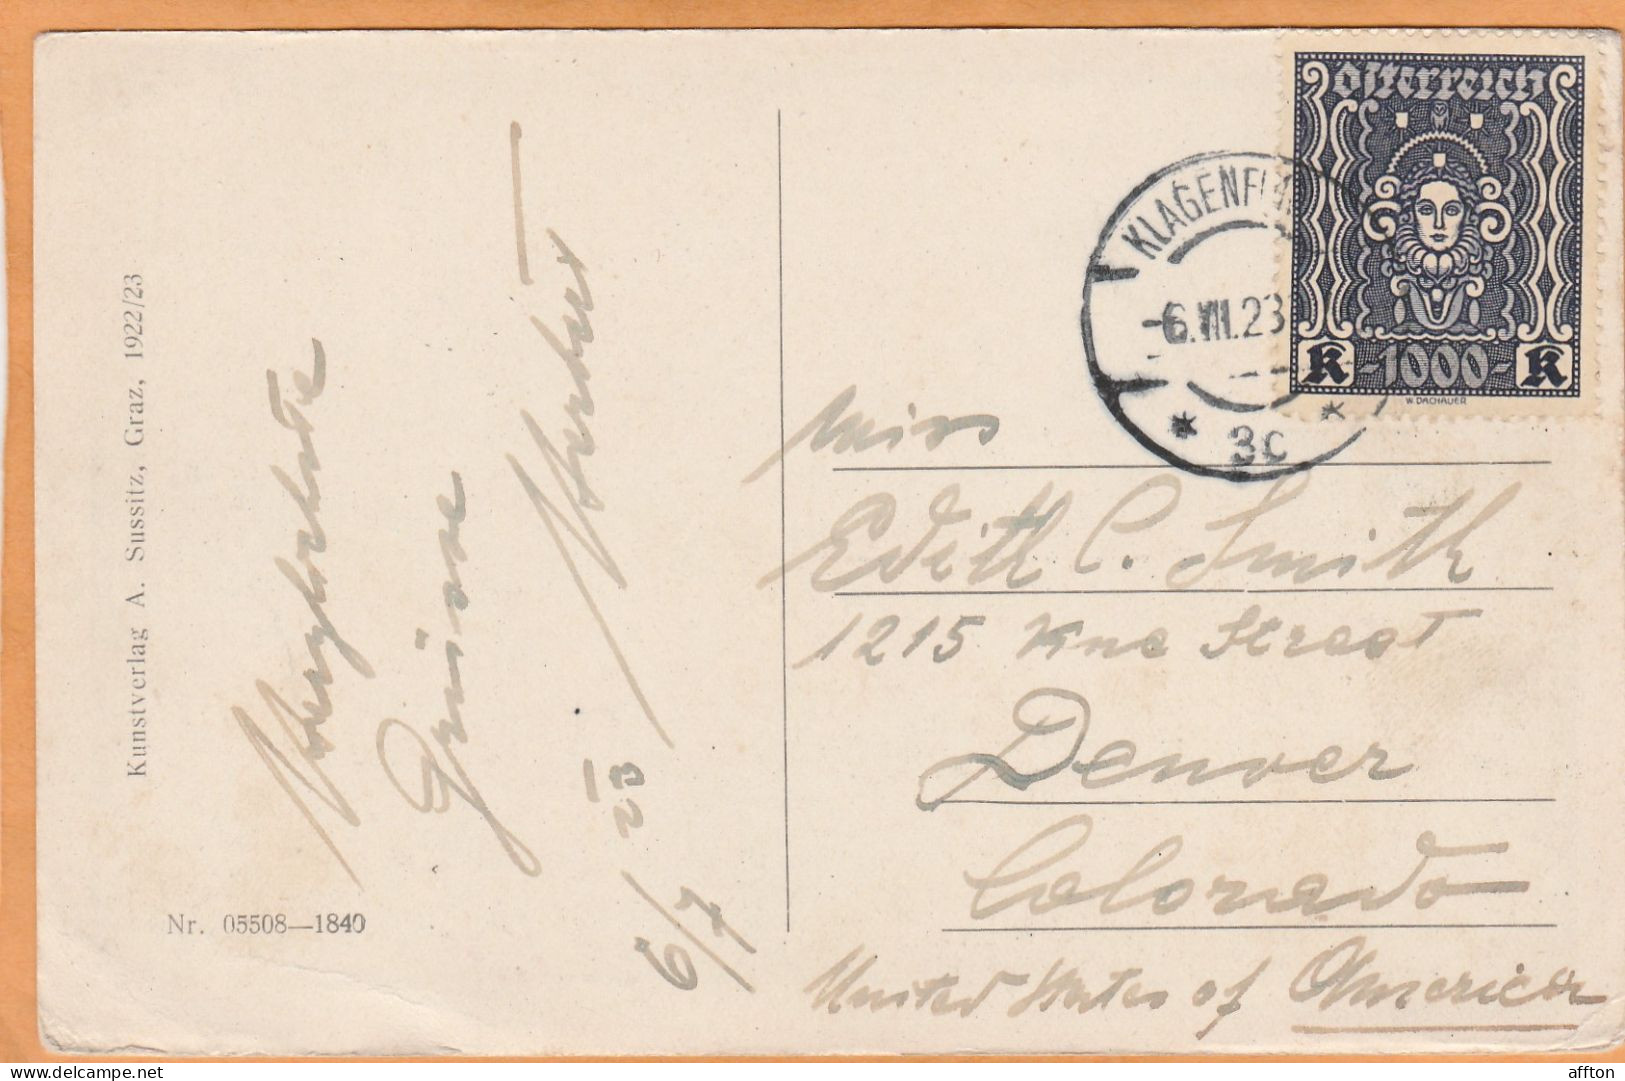 Österreich
K -1000- K
W. DACHAUER
KLAGENFU
-6.VII.23
* 3c *
Kunstverlag A. Sussitz, Graz, 1922/23
Nr. 05508—1840
Grüsse
Herbert
6/7 23
Miss
Edith C. Smith
1215 Vine Street
Denver
Colorado
United States of America
affton